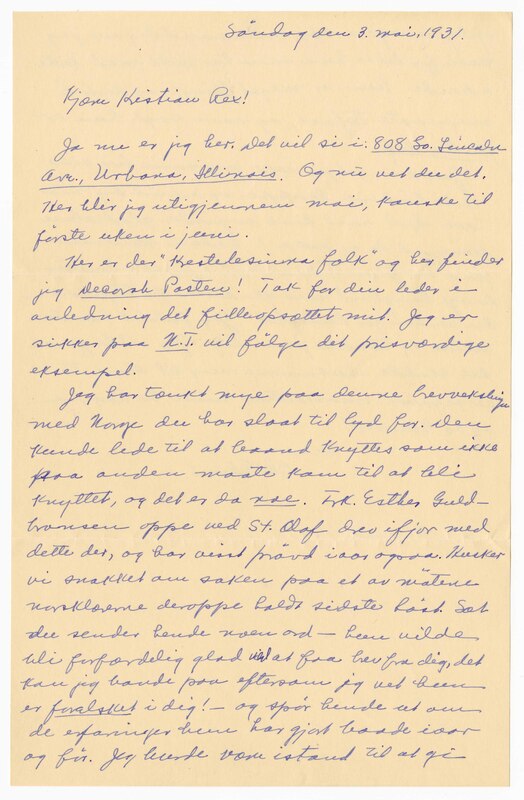 Söndag den 3. mai, 1931.
Kjære Kristian Rex!
Ja nu er jeg her. Det vil si i: 808 So. Lincoln
Ave., Urbana, Illinois. Og nu vet du det.
Her blir jeg utigjennem mai, kanske til
förste uken i juni.
Her er der "Krestelesinna folk" og her finder
jeg Decorah Posten! Tak for din leder i
anledning det filleopsættet mit. Jeg er
sikker paa N.T. vil fölge dit prisværdige
eksempel.
Jeg har tænkt mye paa denne brevvekslingen
med Norge du har slaat til lyd for. Den
kunde lede til at baand knyttes som ikke
paa anden maate kom til at bli
knyttet, og det er da noe. Frk. Esther Guld-
bransen oppe ved St. Olaf drev ifjor med
dette der, og har visst prövd iaar ogsaa. Husker
vi snakket om saken paa et av mötene
norsklærerne deroppe holdt sidste höst. Sæt
du sender hende noen ord — hun vilde
bli forfærdelig glad ved at faa brev fra dig, det
kan jeg bande paa eftersom jeg vet hun
er forelsket i dig! — og spör hende ut om
de erfaringer hun har gjort baade iaar
og för. Jeg burde være istand til at gi